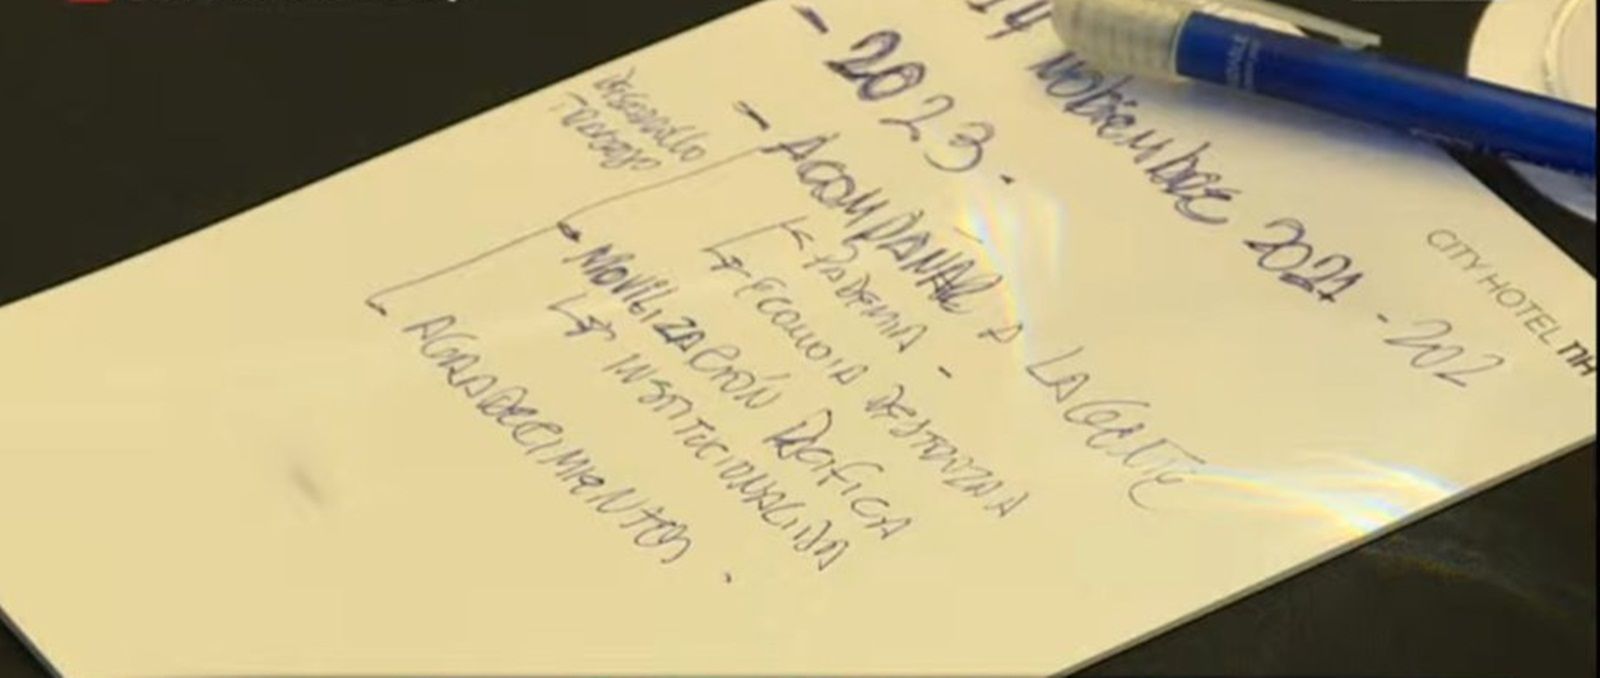 CITY HOTEL NH
14 NObiembre 2021 - 202
- 2023.
- ACOMPAÑAR A LA GENTE
PADEMIA -
ECONOIA DESTROZADA
DESARROLLO
TRABAJO
MOVILIZACIÓN PACIFICA
INSTITUCIONALIDAD
AGRADECIMIENTOS.